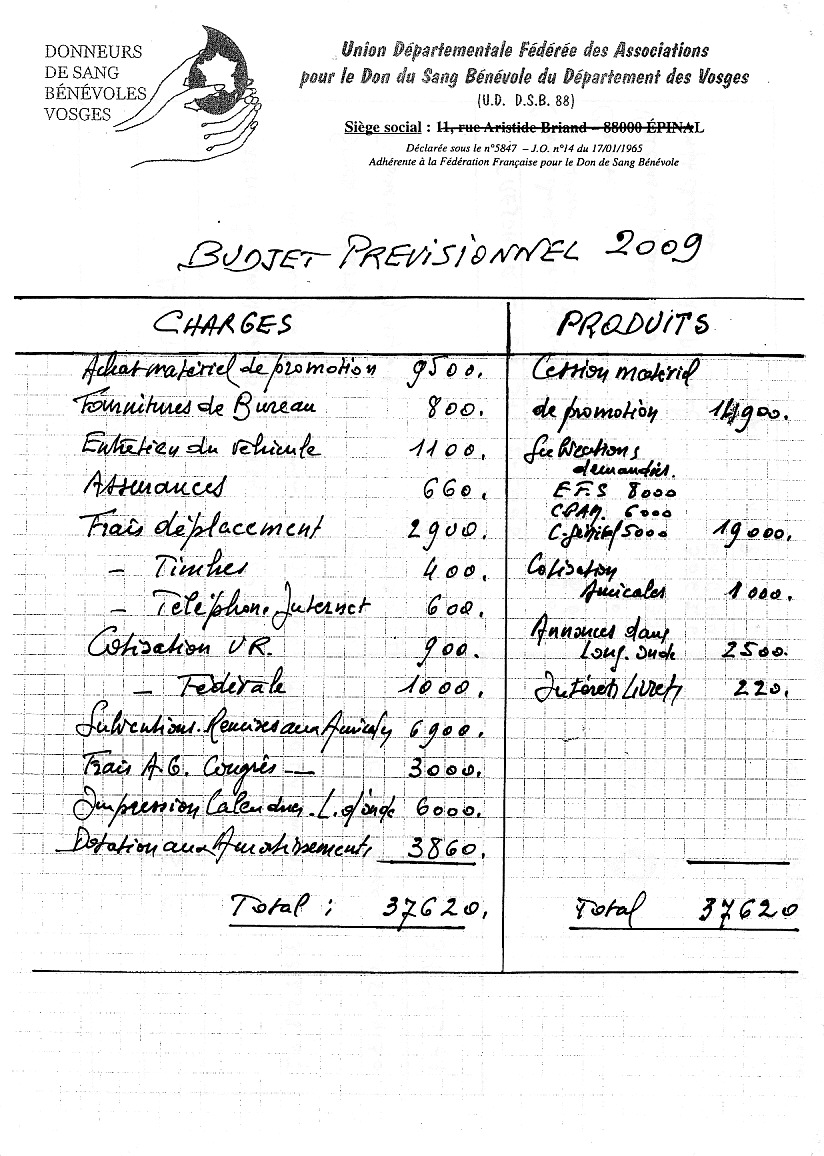 DONNEURS
DE SANG
BÉNÉVOLES
VOSGES
Union Départementale Fédérée des Associations
pour le Don du Sang Bénévole du Département des Vosges
(U.D. D.S.B. 88)
Siège social : 11, rue Aristide Briand – 88000 ÉPINAL
Déclarée sous le n°5847 – J.O. n°14 du 17/01/1965
Adhérente à la Fédération Française pour le Don de Sang Bénévole
BUDJET PREVISIONNEL 2009
CHARGES
Achat matériel de promotion 9500.
Fournitures de Bureau 800.
Entretien du véhicule 1100.
Assurances 660.
Frais déplacement 2900.
– Timbres 400.
– Téléphone Internet 600.
Cotisation UR. 900.
– Fédérale 1000.
Subventions. Remises aux Amicales 6900.
Frais A.G. Congrès — 3000.
Impression Calendriers. L. d'onde 6000.
Dotation aux Amortissements 3860.
Total : 37620.
PRODUITS
Cession matériel
de promotion 14900.
Subventions
demandées.
E.F.S 8000
CPAM. 6000
C. général 5000 19000.
Cotisation
Amicales 1000.
Annonces dans
Long. onde 2500.
Intérêts Livrets 220.
Total 37620